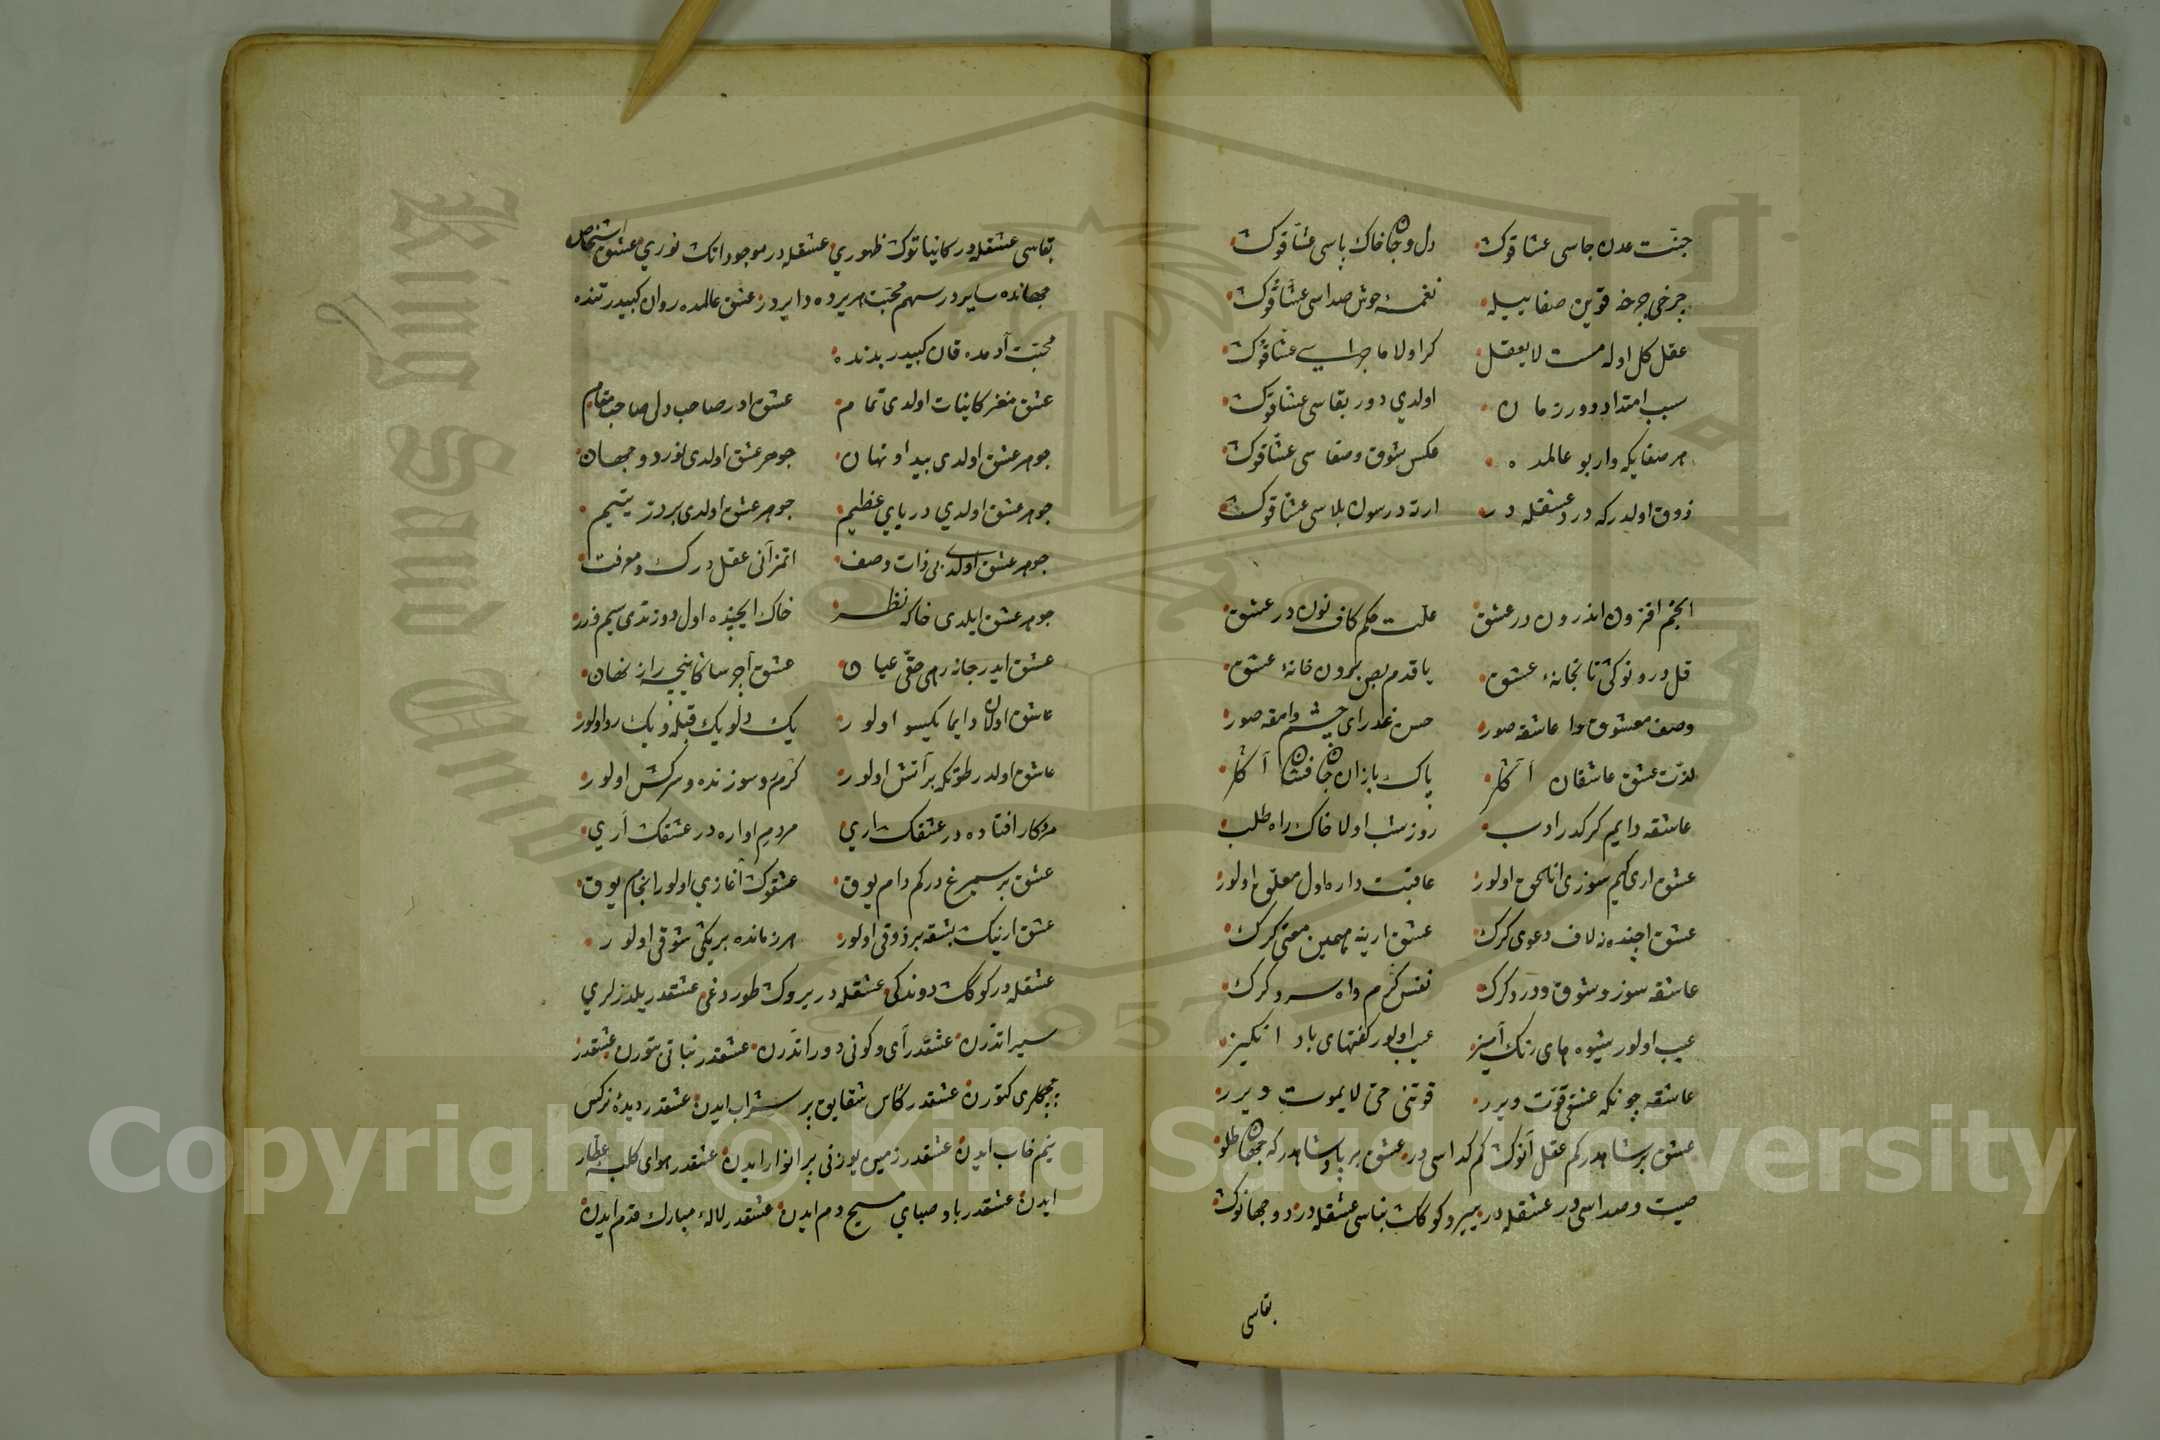 جنّت عدن جاسی عشاقوك دل و جان خاك پاسی عشّاقوك
چرخی چرخه قوین صفا ییله نغمهٔ خوش صداسی عشّاقوك
عقل كل اوله مست لا یعقل كر اولا ماجراسی عشّاقوك
سبب امتداد دور زمان اولدي دور بقاسی عشّاقوك
هر صفا یكه وار بو عالمده عكس شوق و صفاسی عشّاقوك
ذوق اولدركه درد عشقله در ارته درسون بلاسی عشّاقوك
انجم افزون اندرون در عشق علت حكم كاف نون در عشق
قل درونوكی تابخانهٔ عشق یا قدم بصمه درون خانهٔ عشق
وصف معشوق وا عاشقه صور حسن عذرای چشم وامقه صور
لذّت عشق عاشقان آكلر پاك بازان جان فشان آكلر
عاشقه دایم كركدر ادب روز شب اولا خاك راه طلب
عشق اری كیم سوزی اناالحق اولور عاقبت داره اول معلّق اولور
عشق اچنده نه لاف دعوی كرك عشق ارینه همین معنی كرك
عاشقه سوز و شوق و درد كرك نفس كرم و اه سرد كرك
عیب اولور شیوه های رنك آمیز عیب اولور كفتهای باد انكیز
عاشقه چونكه عشق قوّت ویرر قوتنی حی لا یموت ویرر
عشق بر شاهدر كم عقل آنوك كم كداسی در عشق بر پادشاهدر كه جهان طلو
صیت و صداسی در عشقله در ییر و كوكك بناسی عشقله در دو جهانوك
بقاسی
بقاسی عشقله در كایناتوك ظهوري عشقله در موجوداتك نوري عشق اشخاص
جهانده سایر در سهم محبّت هر یرده دایر در عشق عالمده روان كبیدر تنده
محبّت آدمده قان كبیدر بدنده
عشق مغز كاینات اولدی تمام عشق ادر صاحب دل صاحب مقام
جوهر عشق اولدی پیدا و نهان جوهر عشق اولدی نور دو جهان
جوهر عشق اولدي دریاي عظیم جوهر عشق اولدی بر درّ یتیم
جوهر عشق اولدی بی ذات و صف اتمز آنی عقل درك و معرفت
جوهر عشق ایلدی خاكه نظر خاك ایچنده اول دوزتدی سیم و زر
عشق ایدر جانه رهی حقّی عیان عشق آچر سانكا نیجه راز نهان
عاشق اولان دایما یكیسو اولور یك دل و یك قبله و یك رو اولور
عاشق اولدر طوتكه بر آتش اولور كرم و سوزنده و سركش اولور
مردكار افتاده در عشقك اري مردم اواره در عشقك آري
عشق بر سیمرغ در كم دام یوق عشقوك آغازي اولور انجام یوق
عشق ارنیك بشقه بر ذوقی اولور هر زمانده بر یكی شوقی اولور
عشقله در كوكك دوندكی عشقله در یروك طوردغی عشقدر یلدزلری
سیر اتدرن عشقدر آی و كونی دور اتدرن عشقدر نباتی بتورن عشقدر
چیچكلری كتورن عشقدر كأس شقایق پر شراب ایدن عشقدر دیدهٔ نركس
نیم خاب ایدن عشقدر زمین یوزنی پر انوار ایدن عشقدر هوای كلبهٔ عطّار
ایدن عشقدر باد صبایی مسیح دم ایدن عشقدر لالهٔ مبارك قدم ایدن
Copyright © King Saud University
1957